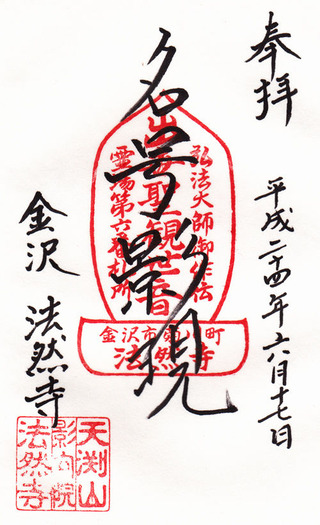 奉拝
平成二十四年六月十七日
名号影現
弘法大師御作法
聖観世音
霊場第六番札所
金沢市
町
法然寺
金沢 法然寺
天渕山
影向院
法然寺